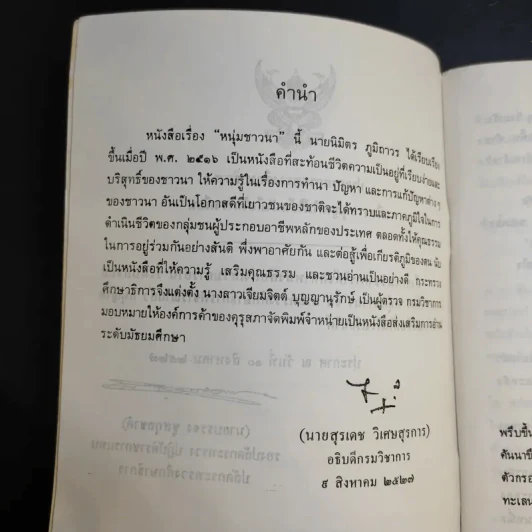 คำนำ
หนังสือเรื่อง “หนุ่มชาวนา” นี้ นายนิมิตร ภูมิถาวร ได้เรียบเรียง
ขึ้นเมื่อปี พ.ศ. ๒๕๑๖ เป็นหนังสือที่สะท้อนชีวิตความเป็นอยู่ที่เรียบง่ายและ
บริสุทธิ์ของชาวนา ให้ความรู้ในเรื่องการทำนา ปัญหา และการแก้ปัญหาต่าง ๆ
ของชาวนา อันเป็นโอกาสดีที่เยาวชนของชาติจะได้ทราบและภาคภูมิใจในการ
ดำเนินชีวิตของกลุ่มชนผู้ประกอบอาชีพหลักของประเทศ ตลอดทั้งให้คุณธรรม
ในการอยู่ร่วมกันอย่างสันติ พึ่งพาอาศัยกัน และต่อสู้เพื่อเกียรติภูมิของตน นับ
เป็นหนังสือที่ให้ความรู้ เสริมคุณธรรม และชวนอ่านเป็นอย่างดี กระทรวง
ศึกษาธิการจึงแต่งตั้ง นางสาวเจียมจิตต์ บุญญานุรักษ์ เป็นผู้ตรวจ กรมวิชาการ
มอบหมายให้องค์การค้าของคุรุสภาจัดพิมพ์จำหน่ายเป็นหนังสือส่งเสริมการอ่าน
ระดับมัธยมศึกษา
(นายสุรเดช วิเศษสุรการ)
อธิบดีกรมวิชาการ
๙ สิงหาคม ๒๕๒๗
พรึบขึ้น
คันนาข
ตัวกรอ
ทะเลน